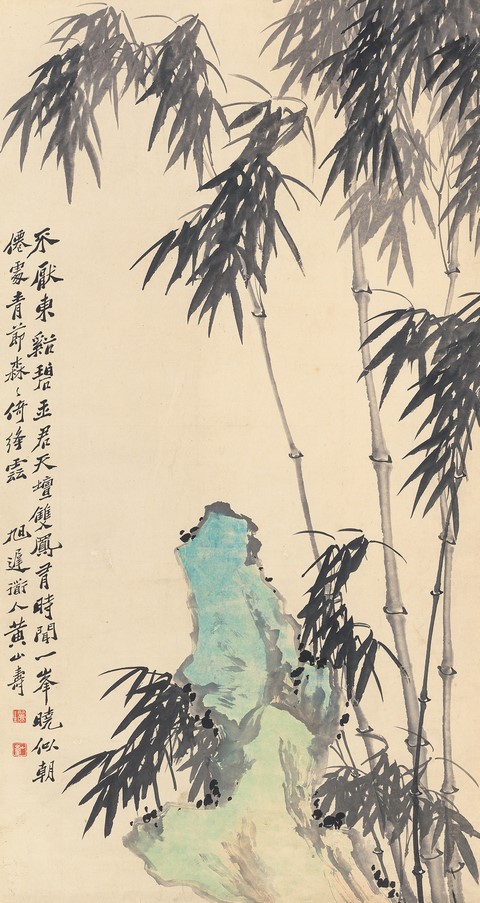 不厭東谿碧玉君天壇雙鳳有時聞一峯曉似朝
僊處青節森〻倚絳雲 旭遲衟人黃山壽